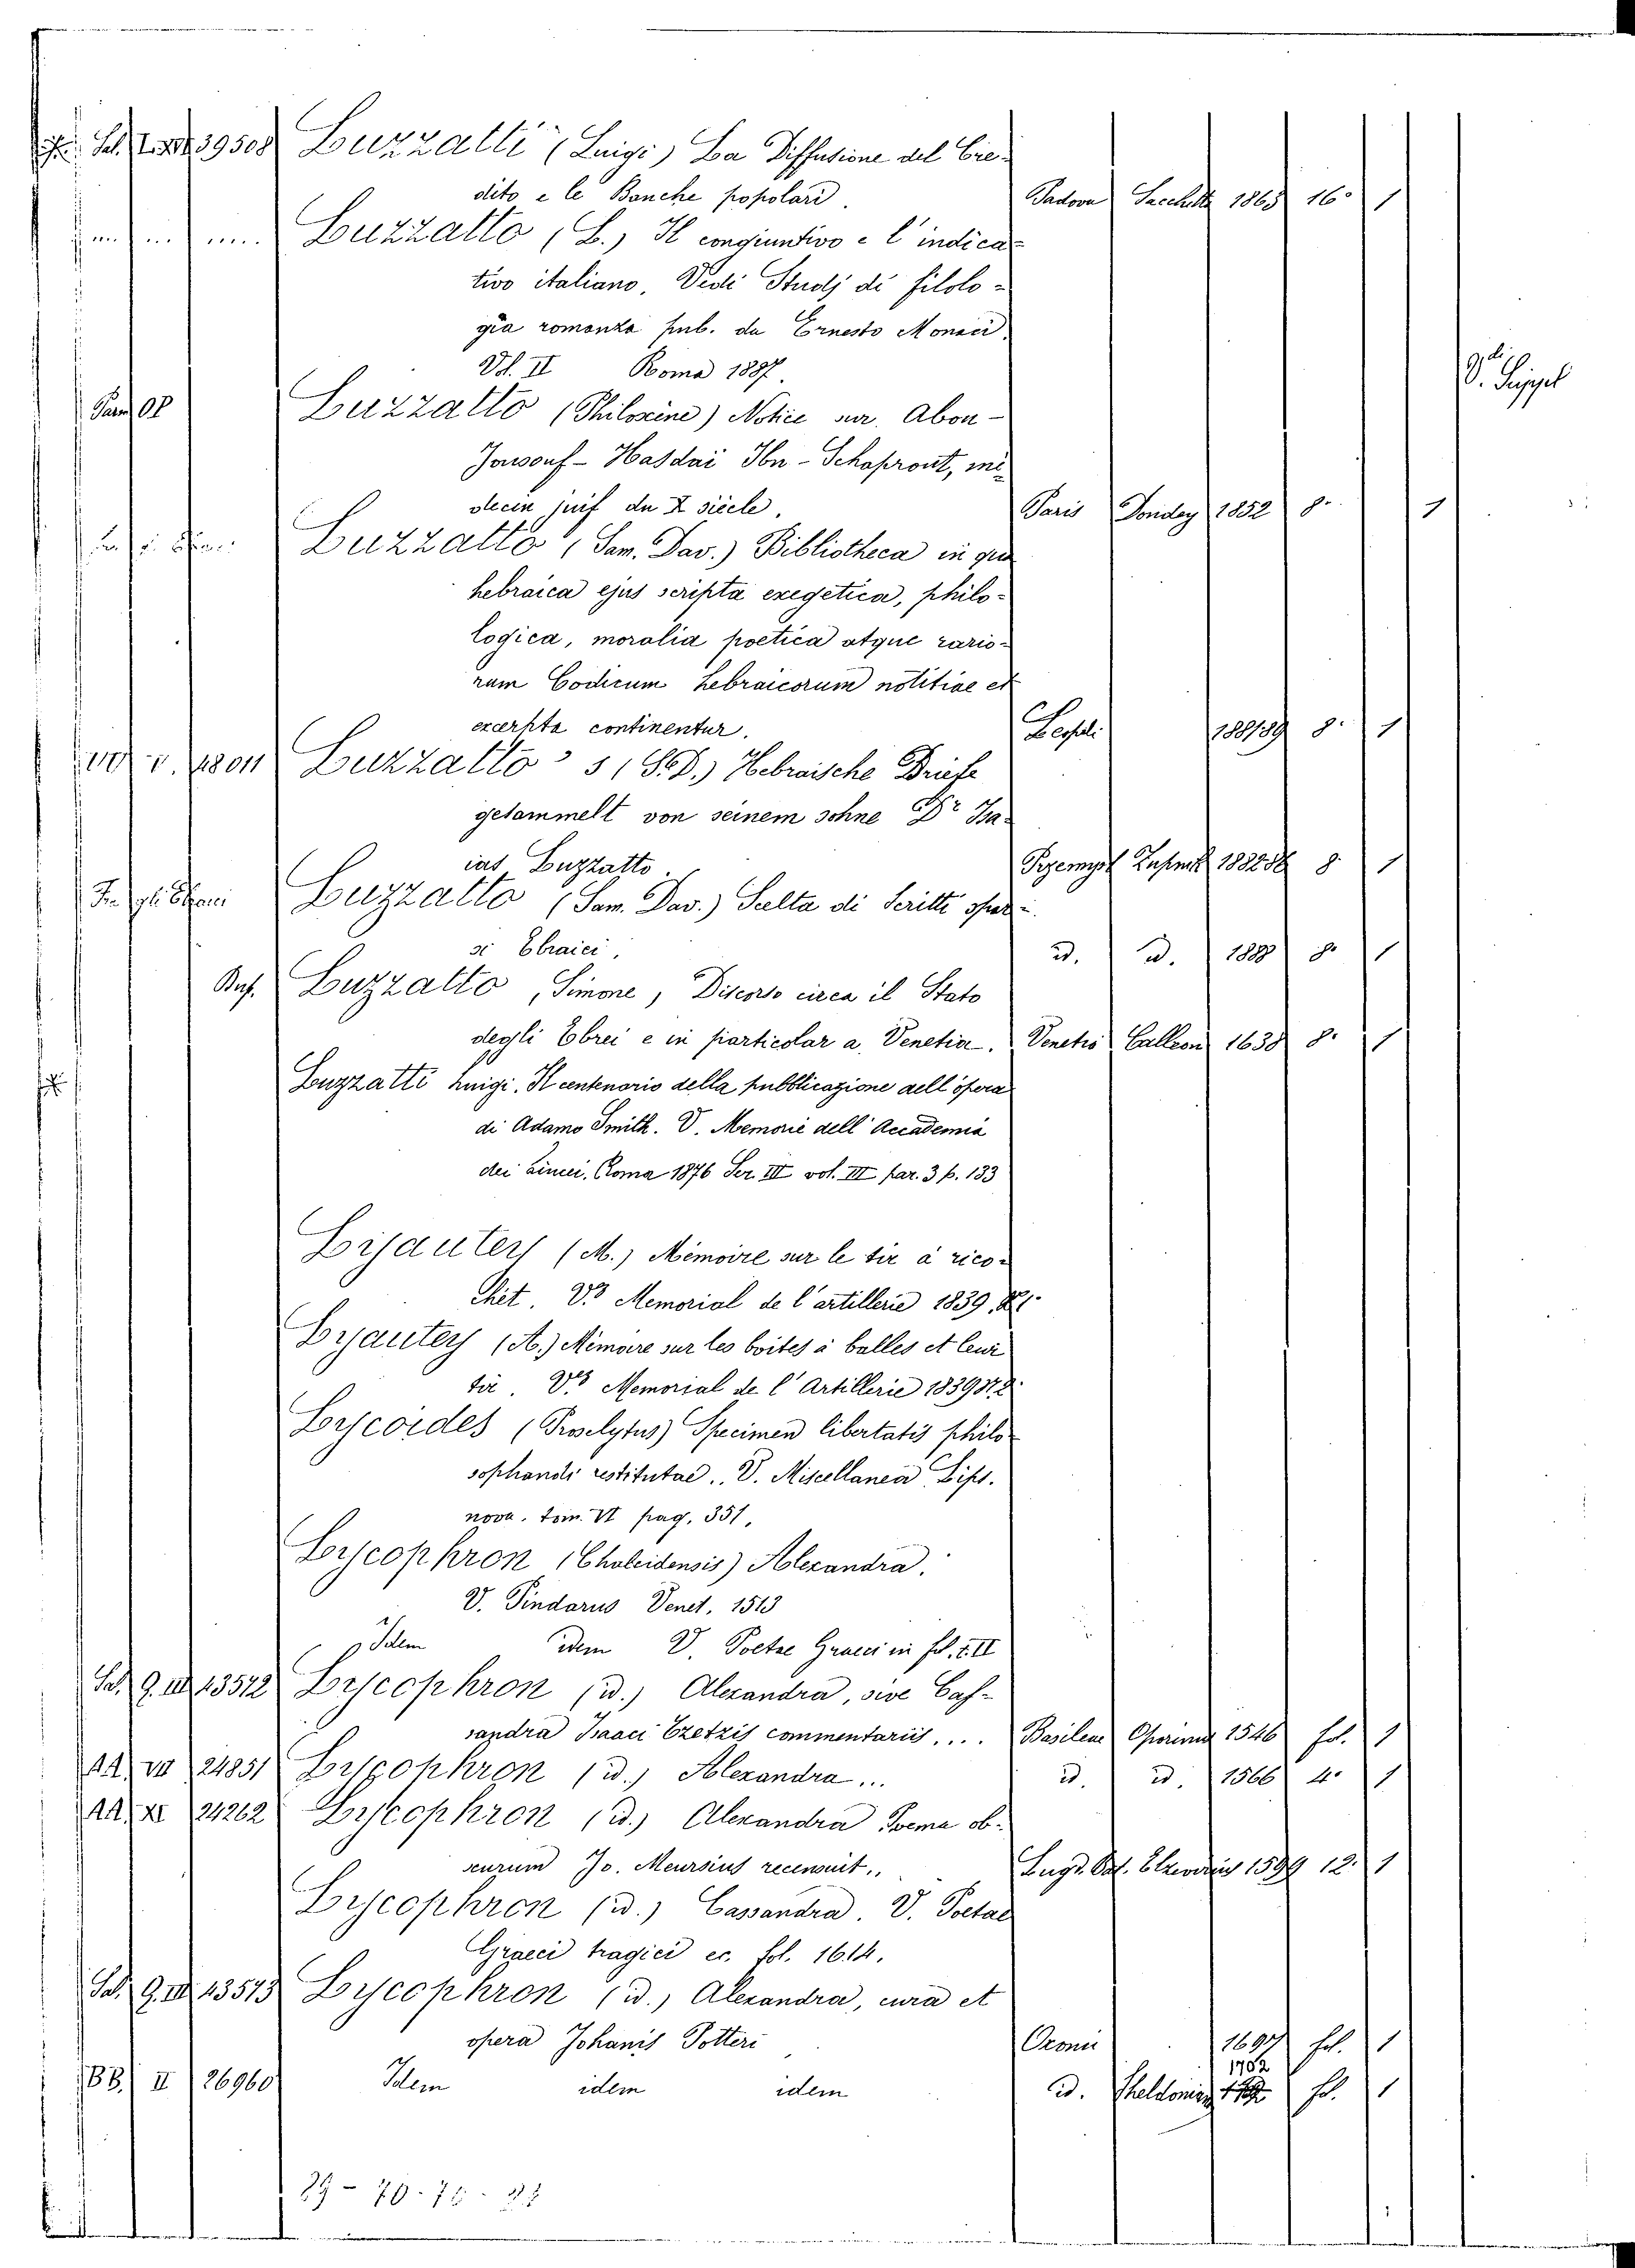 39508 Luzzatti (Luigi) La Diffusione del Cre-
dito e le Banche popolari. Padova Sacchetto 1865 16° 1
Luzzatto (L.) Il congiuntivo e l'indica-
tivo italiano, Vedi Studj di filolo-
gia romanza pub. da Ernesto Monaci.
Vol. II Roma 1887.
Luzzatto (Philoxine) Notice sur Abou-
Jousouf-Hasdai Ibn-Schaprout, mé-
decin juif du X siècle. Paris Dondey 1852 8° 1
Luzzatto (Sam. Dav.) Bibliotheca in qua
hebraica ejus scripta exegetica, philo-
logica, moralia poetica atque rario-
rum Codicum hebraicorum notitiae et
excerpta continentur. 188/89 8° 1
18011 Luzzatto's (S.D.) Hebraische Briefe
gesammelt von seinem sohne Dr Isa-
ias Luzzatto. 8 1
Luzzatto (Sam. Dav.) Scelta di Scritti spar-
si Ebraici, id. id. 8° 1
Luzzatto, Simone, Discorso circa il Stato
degli Ebrei e in particolar a. Venetia. Venetia Calleoni 1638 8° 1
Luzzatti Luigi. Il centenario della pubblicazione dell'opera
di Adamo Smith. V. Memorie dell'Accademia
dei Lincei. Roma 1876 Ser. III vol. III par. 3 p. 133
Lyautey (M.) Mémoire sur le tir à rico-
chet. V. Memorial de l'artillerie 1839
Lyautey (A.) Mémoire sur les boites à balles et leur
tir. V. Memorial de l'Artillerie 1839
Lycoides (Proselytus) Specimen libertatis philo-
sophandi restitutae.. V. Miscellanea Lips.
nova. tom. VI pag. 351.
Lycophron (Chalcidensis) Alexandra.
V. Pindarus Venet. 1513
Idem idem V. Poetae Graeci in fol. t. II
13572 Lycophron (id.) Alexandra, sive Cas-
sandra Isaaci Tzetzis commentariis.... Basileae Oporinus 1546 fol. 1
AA. VII 24851 Lycophron (id.) Alexandra... id. id. 1566 4° 1
AA. XI 24262 Lycophron (id.) Alexandra Poema ob-
scurum Jo. Meursius recensuit.. Lugd. Bat. Elzevirius 1599 12° 1
Lycophron (id.) Cassandra. V. Poetae
Graeci tragici ec. fol. 1614.
13573 Lycophron (id.) Alexandra, cura et
opera Johanis Potteri Oxonii 1697 fol. 1
BB. II 26960 Idem idem idem id. Sheldonian 1702 fol. 1